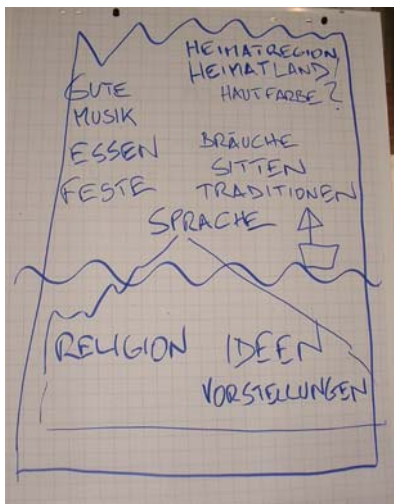 HEIMATREGION/
HEIMATLAND/
HAUTFARBE?
GUTE
MUSIK
ESSEN
FESTE
BRÄUCHE
SITTEN
TRADITIONEN
SPRACHE
RELIGION
IDEEN
VORSTELLUNGEN